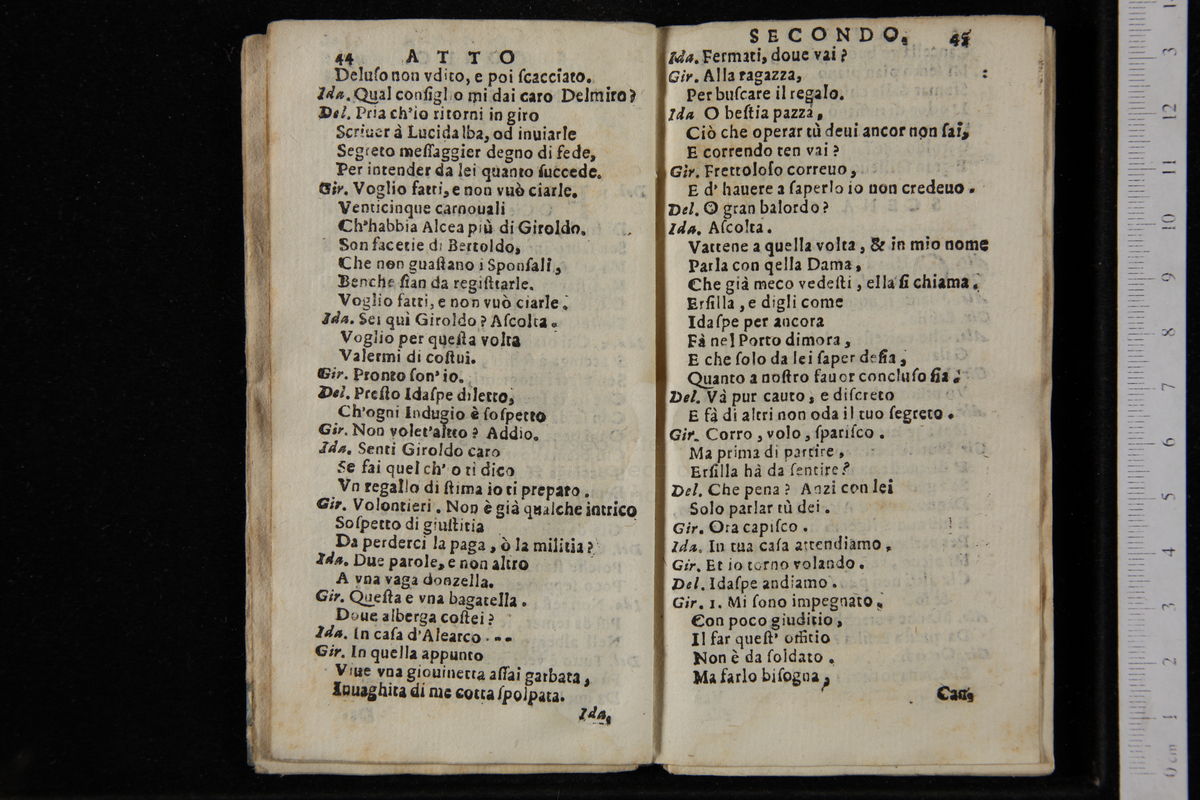 44 ATTO
Deluſo non vdito, e poi ſcacciato.
Ida. Qual conſigl o mi dai caro Delmiro?
Del. Pria ch'io ritorni in giro
Scriuer à Lucidalba, od inuiarle
Segreto meſſaggier degno di fede,
Per intender da lei quanto ſuccede.
Gir. Voglio fatti, e non vuò ciarle.
Venticinque carnouali
Ch'habbia Alcea più di Giroldo.
Son facetie di Bertoldo,
Che non guaſtano i Sponſali,
Benche ſian da regiſttarle.
Voglio fatti, e non vuò ciarle.
Ida. Sei qui Giroldo? Aſcolta.
Voglio per queſta volta
Valermi di coſtui.
Gir. Pronto ſon' io.
Del. Preſto Idaſpe diletto,
Ch'ogni Indugio è ſoſpetto
Gir. Non volet'altto? Addio.
Ida. Senti Giroldo caro
Se fai quel ch' o ti dico
Vn regallo di ſtima io ti preparo.
Gir. Volontieri. Non è già qualche intrico
Soſpetto di giuſtitia
Da perderci la paga, ò la militia?
Ida. Due parole, e non altro
A vna vaga donzella.
Gir. Queſta e vna bagatella.
Doue alberga coſtei?
Ida. In caſa d'Alearco...
Gir. In quella appunto
Viue vna giouinetta aſſai garbata,
Inuaghita di me cotta ſpolpata.
Ida,
SECONDO. 45
Ida. Fermati, doue vai?
Gir. Alla ragazza,
Per buſcare il regalo.
Ida O beſtia pazza,
Ciò che operar tù deui ancor non ſai,
E correndo ten vai?
Gir. Frettoloſo correuo,
E d' hauere a ſaperlo io non credeuo.
Del. O gran balordo?
Ida. Aſcolta.
Vattene a quella volta, & in mio nome
Parla con qella Dama,
Che già meco vedeſti, ella ſi chiama.
Erſilla, e digli come
Idaſpe per ancora
Fà nel Porto dimora,
E che ſolo da lei ſaper deſia,
Quanto a noſtro fauor concluſo ſia.
Del. Và pur cauto, e diſcreto
E fà di altri non oda il tuo ſegreto.
Gir. Corro, volo, ſpariſco.
Ma prima di partire,
Erſilla hà da ſentire?
Del. Che pena? Anzi con lei
Solo parlar tù dei.
Gir. Ora capiſco.
Ida. In tua caſa attendiamo,
Gir. Et io torno volando.
Del. Idaſpe andiamo.
Gir. 1. Mi ſono impegnato,
Con poco giuditio,
Il far queſt' offitio
Non è da ſoldato.
Ma farlo biſogna,
Can,
0 cm 1 2 3 4 5 6 7 8 9 10 11 12 3